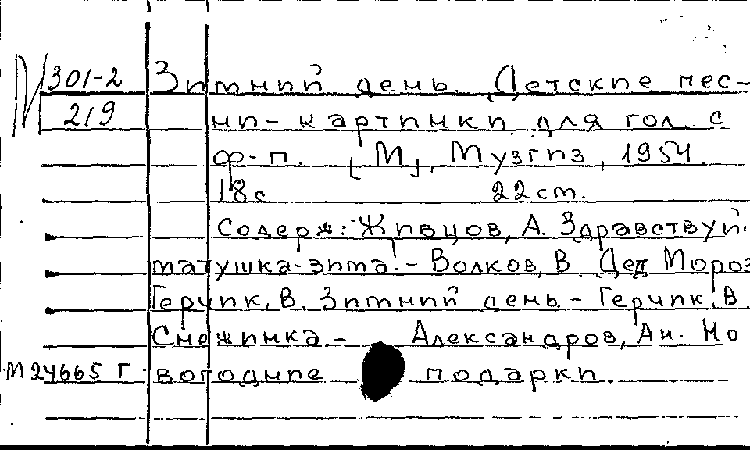 М 301-2 Зимний день. Детские пес-
219 ни-картинки для гол. с
ф-п. [М], Музгиз, 1954.
18 с 22 cm.
Содерж: Живцов, А. Здравствуй.
матушка-зима! - Волков, В. Дед Мороз
Герчик, В. Зимний день - Герчик, В
Снежинка. - Александров, Ан. Но
М 24665 Г вогодние подарки.